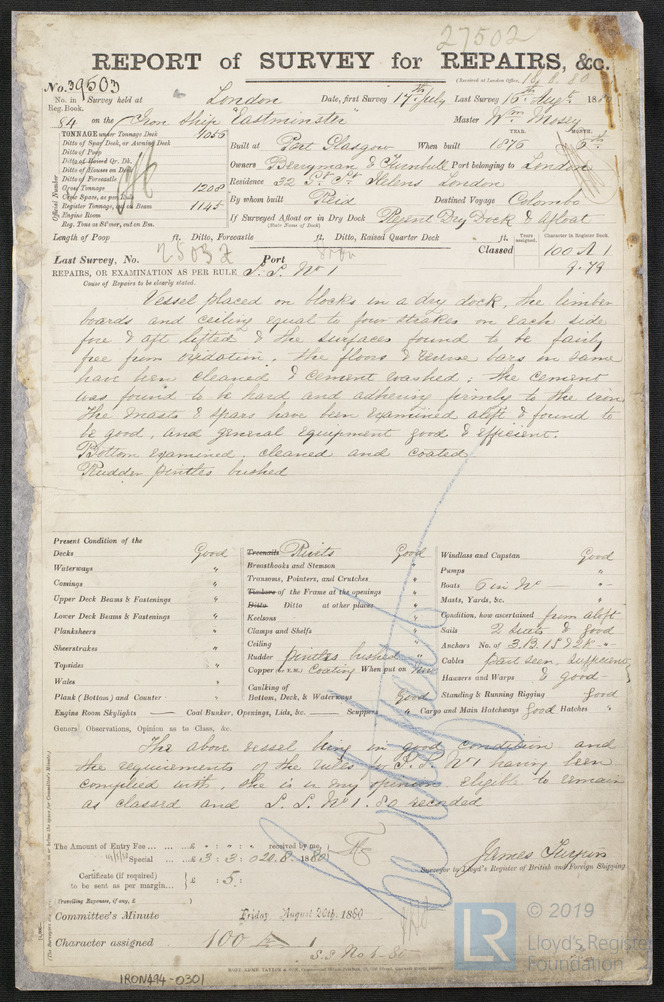 27502
REPORT of SURVEY for REPAIRS, &c.
No. 39503
No. in Survey held at London Date, first Survey 17th July Last Survey 16 Augt 1880
Reg. Book.
84 on the Iron Ship "Eastminster" Master Wm Mosey
TONNAGE under Tonnage Deck 1056
Ditto of Spar Deck, or Awning Deck
Ditto of Poop
Ditto of Raised Qr. Dk.
Ditto of Houses on Deck
Ditto of Forecastle
Gross Tonnage 1208
Crew Space, as per Rule
Register Tonnage, cut on Beam 1145
Engine Room
Reg. Tons as Stmr., cut on Bm.
Official Number
YEAR. MONTH.
Built at Port Glasgow When built 1876 5th
Owners Berryman & Turnbull Port belonging to London
Residence 32 Gt St Helens London
By whom built Reid Destined Voyage Colombo
If Surveyed Afloat or in Dry Dock Regent Dry Dock & Afloat
(State Name of Dock)
Length of Poop ft. Ditto, Forecastle ft. Ditto, Raised Quarter Deck ft.
Years assigned. Character in Register Book
Classed 100 A 1
9.79
Last Survey, No. 25032 Port
REPAIRS, OR EXAMINATION AS PER RULE S. S. No 1
Cause of Repairs to be clearly stated.
Vessel placed on blocks in a dry dock, the limber
boards and ceiling equal to four strakes on each side
fore & aft lifted & the surfaces found to be fairly
free from oxidation. The floors & reverse bars in same
have been cleaned & cement washed: the cement
was found to be hard and adhering firmly to the iron
The masts & spars have been examined aloft & found to
be good, and general equipment good & efficient.
Bottom examined, cleaned and coated
Rudder pintles bushed
Present Condition of the
Decks Good
Waterways "
Comings "
Upper Deck Beams & Fastenings "
Lower Deck Beams & Fastenings "
Planksheers "
Sheerstrakes "
Topsides "
Wales "
Plank (Bottom) and Counter "
Engine Room Skylights — Coal Bunker, Openings, Lids, &c. — Scuppers "
Treenails Rivets Good
Breasthooks and Stemson "
Transoms, Pointers, and Crutches "
Timbers of the Frame at the openings "
Ditto Ditto at other places "
Keelsons "
Clamps and Shelfs "
Ceiling "
Rudder pintles bushed "
Copper or Y.M. Coating When put on New
Caulking of
Bottom, Deck, & Waterways Good
Windlass and Capstan Good
Pumps "
Boats "
Masts, Yards, &c. "
Condition, how ascertained from aloft
Sails 2 suits & good
Anchors No. of 3.B. 1S & 2K "
Cables part seen, sufficient
Hawsers and Warps & good
Standing & Running Rigging Good
Cargo and Main Hatchways Good Hatches "
General Observations, Opinion as to Class, &c.
The above vessel being in good condition and
the requirements of the rules for S. S. No 1 having been
complied with, she is in my opinion eligible to remain
as classed and S. S. No 1. 80 recorded
The Amount of Entry Fee ... £ " : " : " received by me,
Special ... £ 3 : 3 : 0 20.8.1880
Certificate (if required) to be sent as per margin... £ : 5 :
(Travelling Expenses, if any, £ )
James Turpin
Surveyor to Lloyd's Register of British and Foreign Shipping
Committee's Minute Friday August 20th. 1880
Character assigned 100 A 1
S.S No 1-80
IRON494-0301
© 2019
LR
Lloyd's Register
Foundation